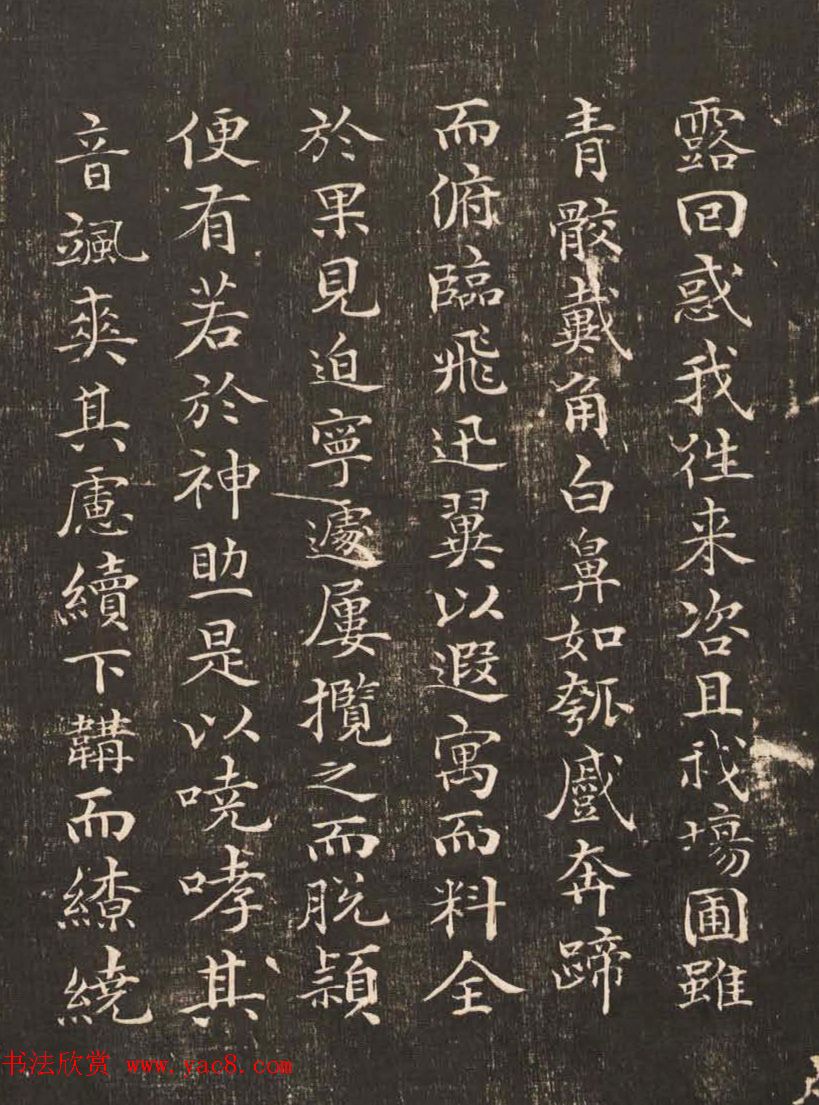 露囘惑我徃来咨且我塲圃雖
青骹戴角白鼻如瓠奔蹄
而俯臨飛迅翼以遐寓而料全
於果見迫寧遽屢攬之而脱穎
便有若於神助是以哮其
音颯爽其慮續下韝而繚繞
书法欣赏 www.yac8.com